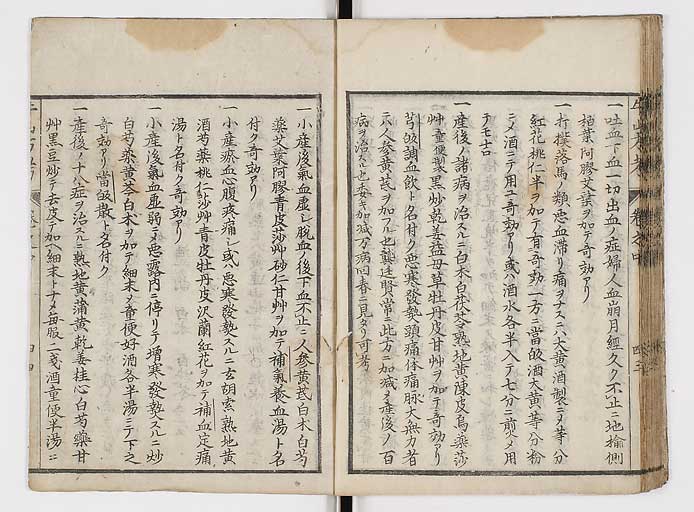 一吐血下血一切出血ノ症婦人血崩月經久ク不止ニ地榆側
栢葉阿膠艾葉ヲ加テ奇効アリ
一打撲落馬ノ類惡血滯リ痛ヲナスニハ大黄酒製ニ〆等分
紅花桃仁半ヲ加テ有奇効一方ニ當皈酒大黄等分粉
ニ〆酒ニテ用ニ奇効アリ或ハ酒水各半入テ七分ニ前〆用
テモ吉
一産後ハ諸病ヲ治スルニ白木白茯苓熟地黄陳皮烏藥莎
艸童便製黒炒乾姜益母草牡丹皮甘艸ヲ加テ奇効アリ
芎皈調血飲ト名付ク惡寒發熱頭痛体痛脉大無力者
ニハ人参黄芪ヲ加フル也龔廷賢常ニ此方ニ加減〆産後ノ百
病ヲ治スル也委キ加減万病回春ニ見タリ可考
一小産後氣血虚シ脱血ノ後下血不止ニ人参黄芪白木白芍
藥艾葉阿膠青皮莎艸砂仁甘艸ヲ加テ補氣養血湯ト名
付ク奇効アリ
一小産瘀血心腹疼痛シ或ハ惡寒發熱スルニ玄胡索熟地黄
酒芍藥桃仁莎艸青皮牡丹皮沢蘭紅花ヲ加テ補血定痛
湯ト名付ク奇効アリ
一小産後氣血虚弱ニ〆惡露内ニ停リテ増寒發熱スルニ炒
白芍藥黄芩白木ヲ加テ細末〆童便好酒各半湯ニテ下之
奇効アリ當皈散ト名付ク
一産後ノ十八症ヲ治スルニ熟地黄蒲黄乾姜桂心白芍藥甘
艸黒豆炒テ去皮テ加ヘ細末トナ〆毎服二戔酒童便半湯ニ